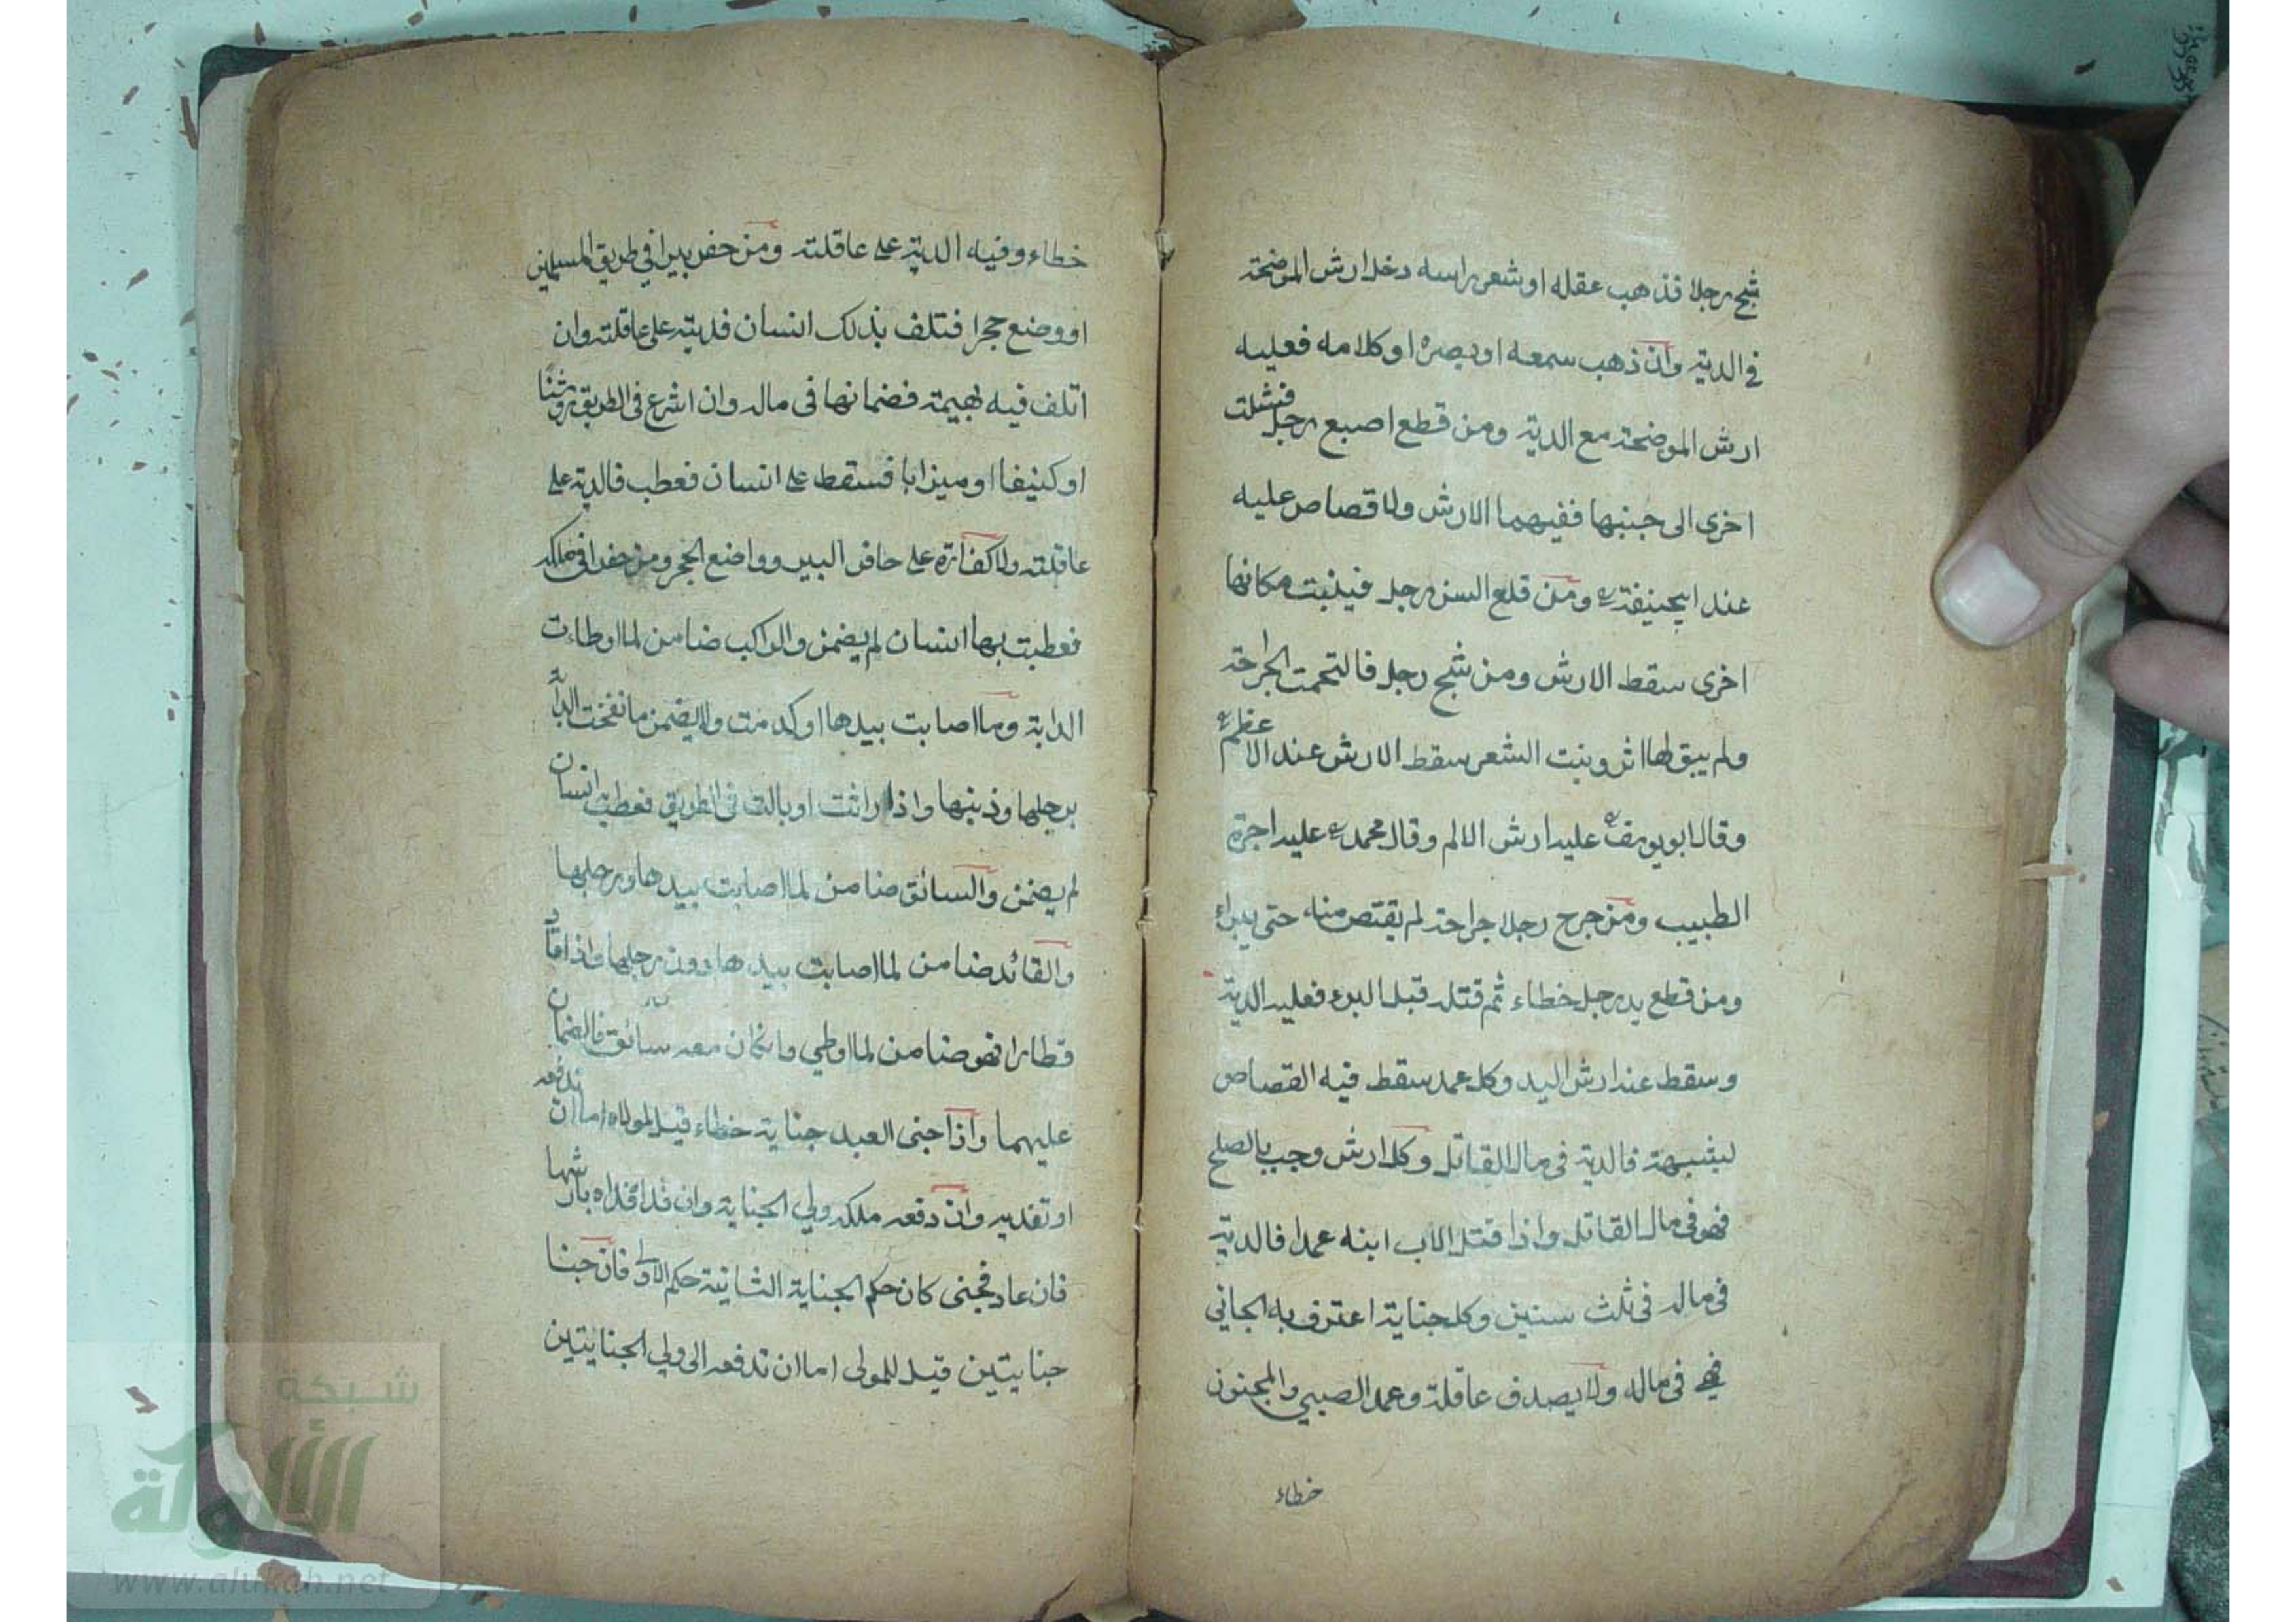 شج رجلا فذهب عقله او شعر راسه دخل ارش الموضحة
في الدية وان ذهب سمعه او بصره او كلامه فعليه
ارش الموضحة مع الدية ومن قطع اصبع رجل فشلت
اخرى الى جنبها ففيهما الارش ولا قصاص عليه
عند ابيحنيفة ومن قلع السن رجل فينبت مكانها
اخرى سقط الارش ومن شج رجل فالتحمت الجراحة
ولم يبق لها اثر ونبت الشعر سقط الارش عند الاعظم
وقال ابويوسف عليه ارش الالم وقال محمد عليه اجرة
الطبيب ومن جرح رجلا جراحة لم يقتص منه حتى يبراء
ومن قطع يد رجل خطاء ثم قتله قبل البرء فعليه الدية
وسقط عنه ارش اليد وكل عمد سقط فيه القصاص
لبشبهة فالدية في مال القاتل وكل ارش وجب بالصلح
فهو في مال القاتل واذا قتل الاب ابنه عمدا فالدية
في ماله في ثلث سنين وكل جناية اعترف به الجاني
فهي في ماله ولا يصدق عاقلة وعمد الصبي والمجنون
خطاء
خطاء وفيه الدية على عاقلته ومن حفر بيرا في طريق المسلمين
او وضع حجرا فتلف بذلك انسان فديته على عاقلته وان
اتلف فيه بهيمة فضمانها في ماله وان اشرع في الطريق روشنا
او كنيفا او ميزابا فسقط على انسان فعطب فالدية على
عاقلته ولا كفارة على حافر البير وواضع الحجر ومن حفر في ملكه
فعطبت بها انسان لم يضمن والراكب ضامن لما اوطاءت
الدابة وما اصابت بيدها او كدمت ولا يضمن ما نفخت الدابة
برجلها وذنبها واذا راثت او بالت في الطريق فعطب به انسان
لم يضمن والسائق ضامن لما اصابت بيدها ورجلها
والقائد ضامن لما اصابت بيدها دون رجلها واذا قاد
قطارا فهو ضامن لما اوطي وان كان معه سائق فالضمان
عليهما واذا جنى العبد جناية خطاء قيل لمولاه اما ان تدفعه
او تفديه وان دفعه ملكه ولي الجناية وان فداه فداه بارشها
فان عاد فجنى كان حكم الجناية الثانية حكم الاولى فان جنا
جنايتين قيل للمولى اما ان تدفعه الى ولي الجنايتين
شبكة
الألوكة
www.alukah.net